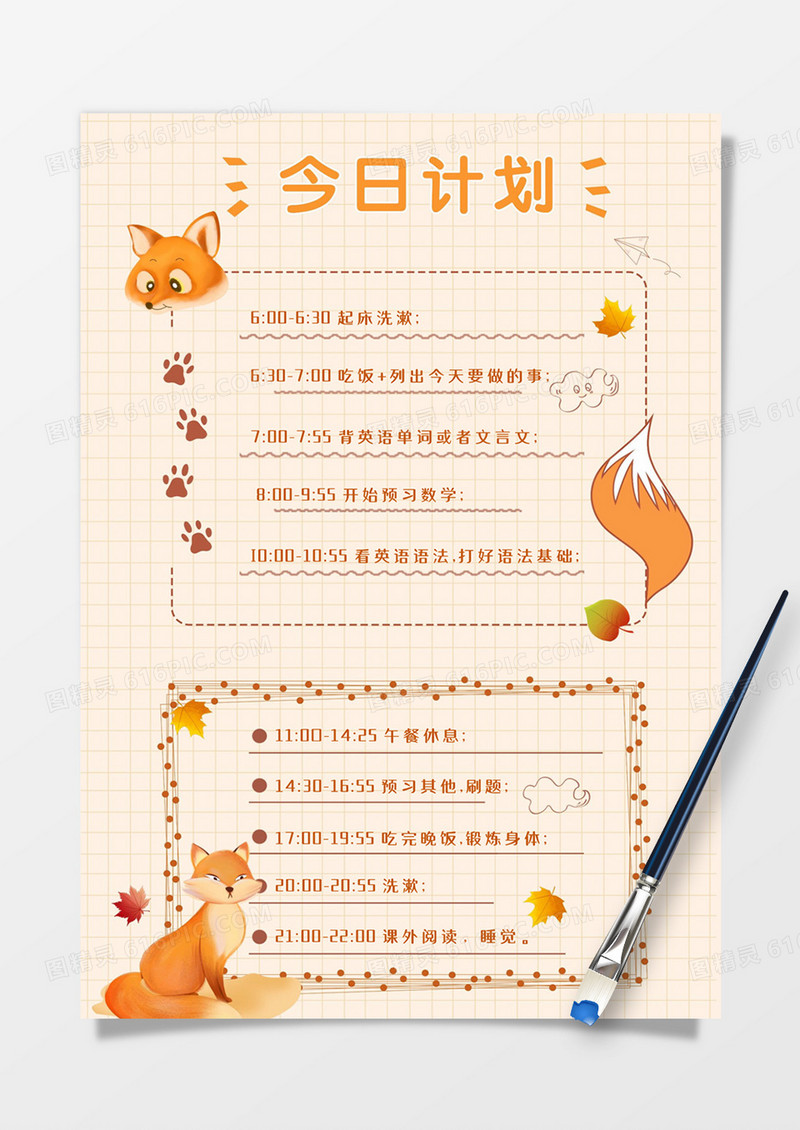 今日计划
6:00-6:30 起床洗漱;
6:30-7:00 吃饭+列出今天要做的事;
7:00-7:55 背英语单词或者文言文;
8:00-9:55 开始预习数学;
10:00-10:55 看英语语法,打好语法基础;
11:00-14:25 午餐休息;
14:30-16:55 预习其他,刷题;
17:00-19:55 吃完晚饭,锻炼身体;
20:00-20:55 洗漱;
21:00-22:00 课外阅读，睡觉。
图精灵 616PIC.COM